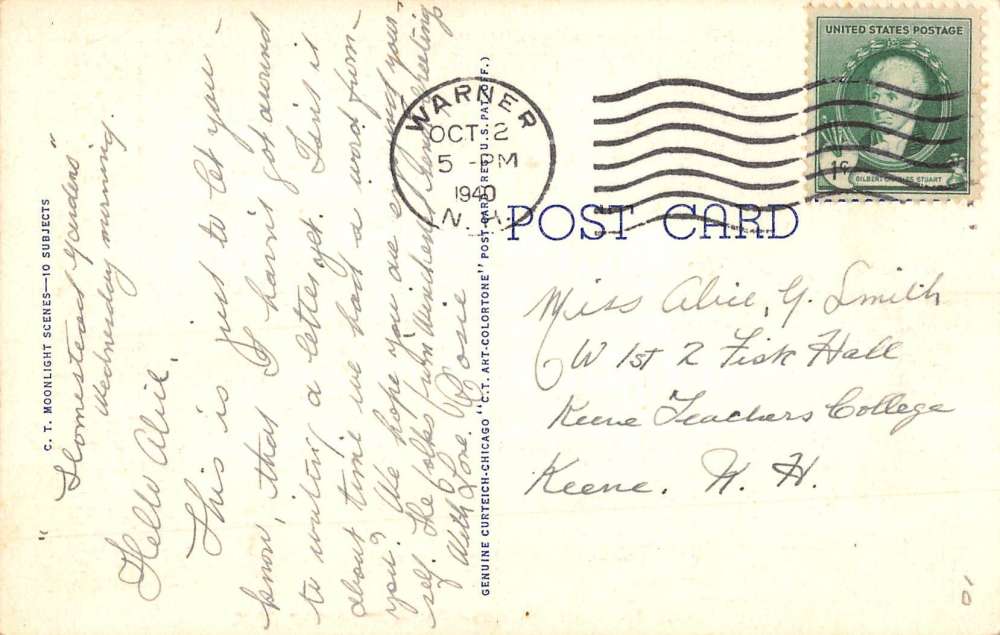 C. T. MOONLIGHT SCENES—10 SUBJECTS
"Homestead Gardens"
Wednesday morning.
Hello Alice.
This is just to let you
know, that I havn't got around
to writing a letter yet. Isn't it
about time we had a word from
you? We hope you are enjoying your
self. The folks from Winchester have been
With Love. Rosie
GENUINE CURTEICH-CHICAGO "C.T. ART-COLORTONE" POST CARD (REG. U.S. PAT. OFF.)
WARNER
OCT 2
5 - PM
1940
N. H.
UNITED STATES POSTAGE
1¢
GILBERT CHARLES STUART
POST CARD
Miss Alice, G. Smith
W 1st 2 Fisk Hall
Keene Teachers College
Keene. N. H.